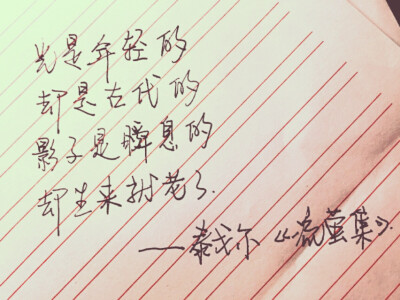 光是年轻的
却是古代的
影子是瞬息的
却生来就老了.
——泰戈尔《流萤集》.